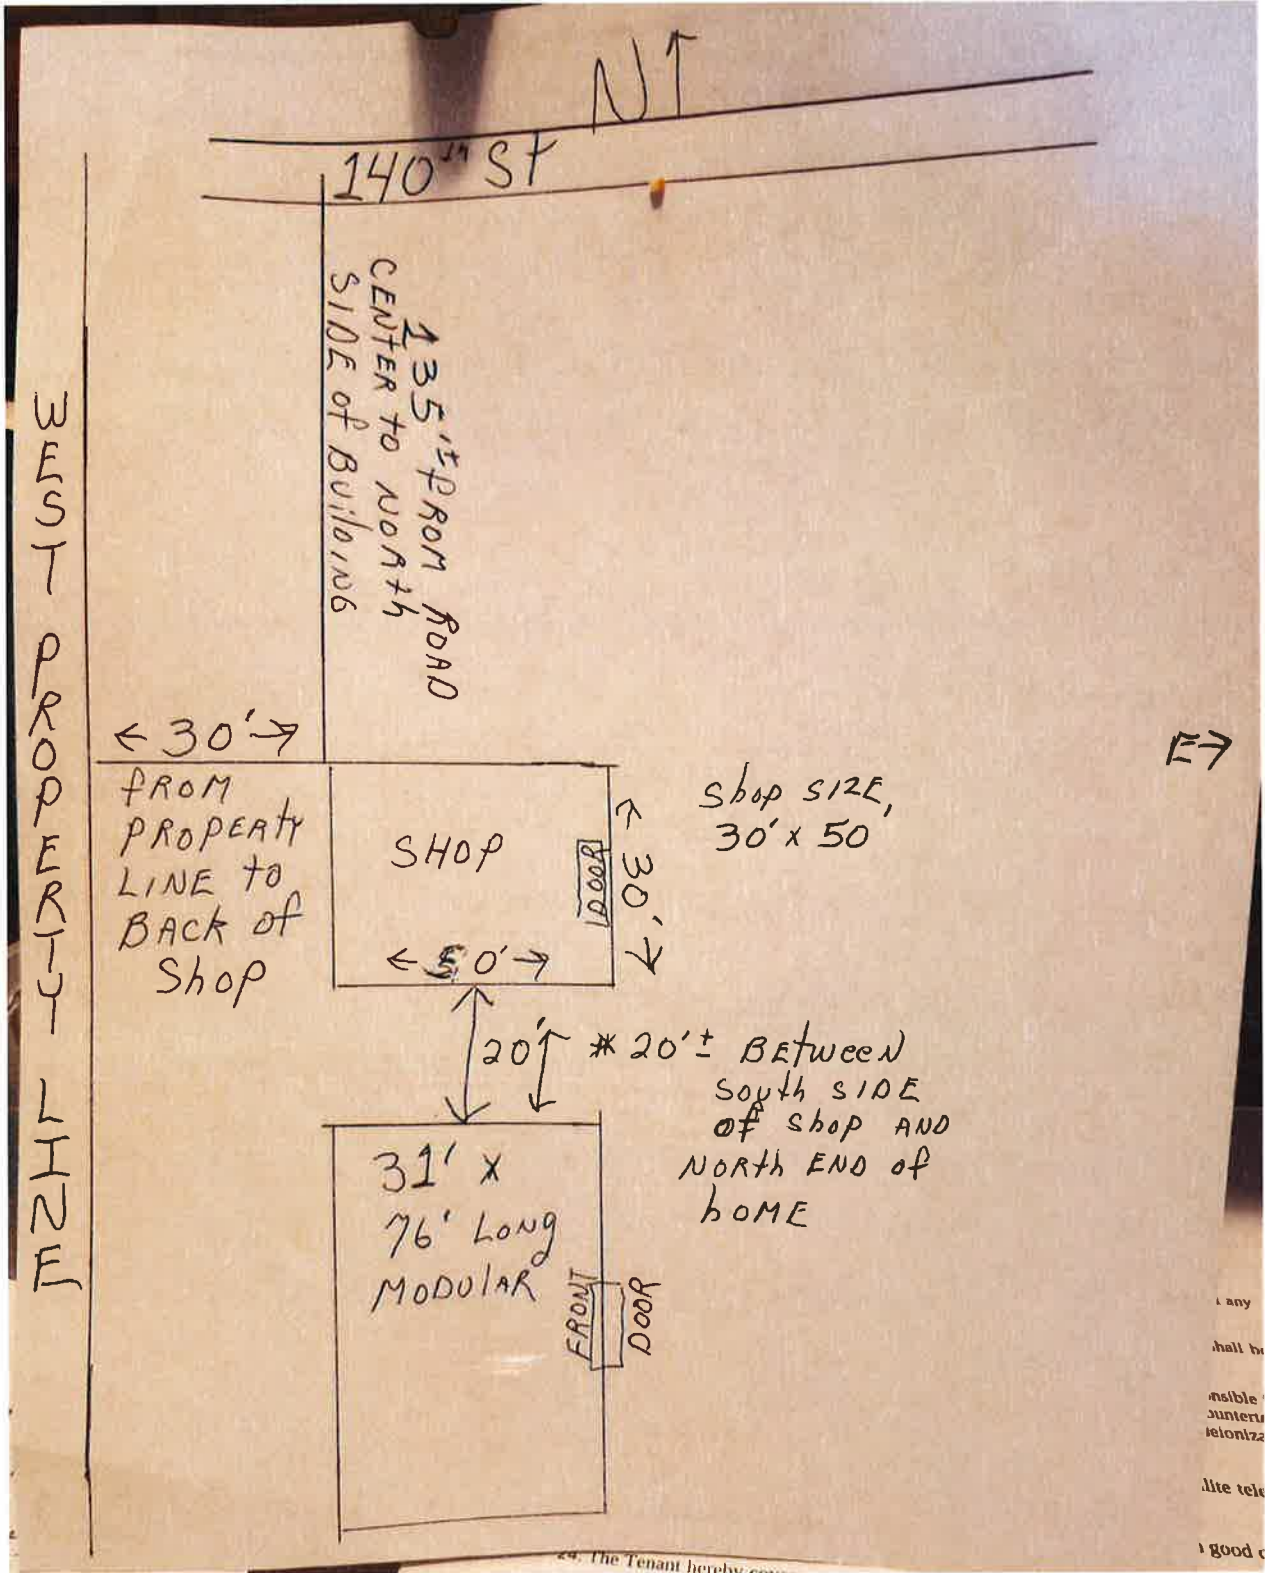 N↑
140th St
135'± FROM ROAD
CENTER to NORth
SIDE of BuilDING
WEST PROPERTY LINE
← 30' →
fROM
PROPERty
LINE to
BACK of
Shop
SHOP
DOOR
← 30' →
← 50' →
Shop SIZE,
30' x 50'
E→
20'
* 20'± BEtweeN
South SIDE
of Shop AND
NORth END of
hOME
31' x
76' LoNg
MODUlAR
FRONT
DOOR
any
hall
nsible
lite tele
good
24. The Tenant hereby